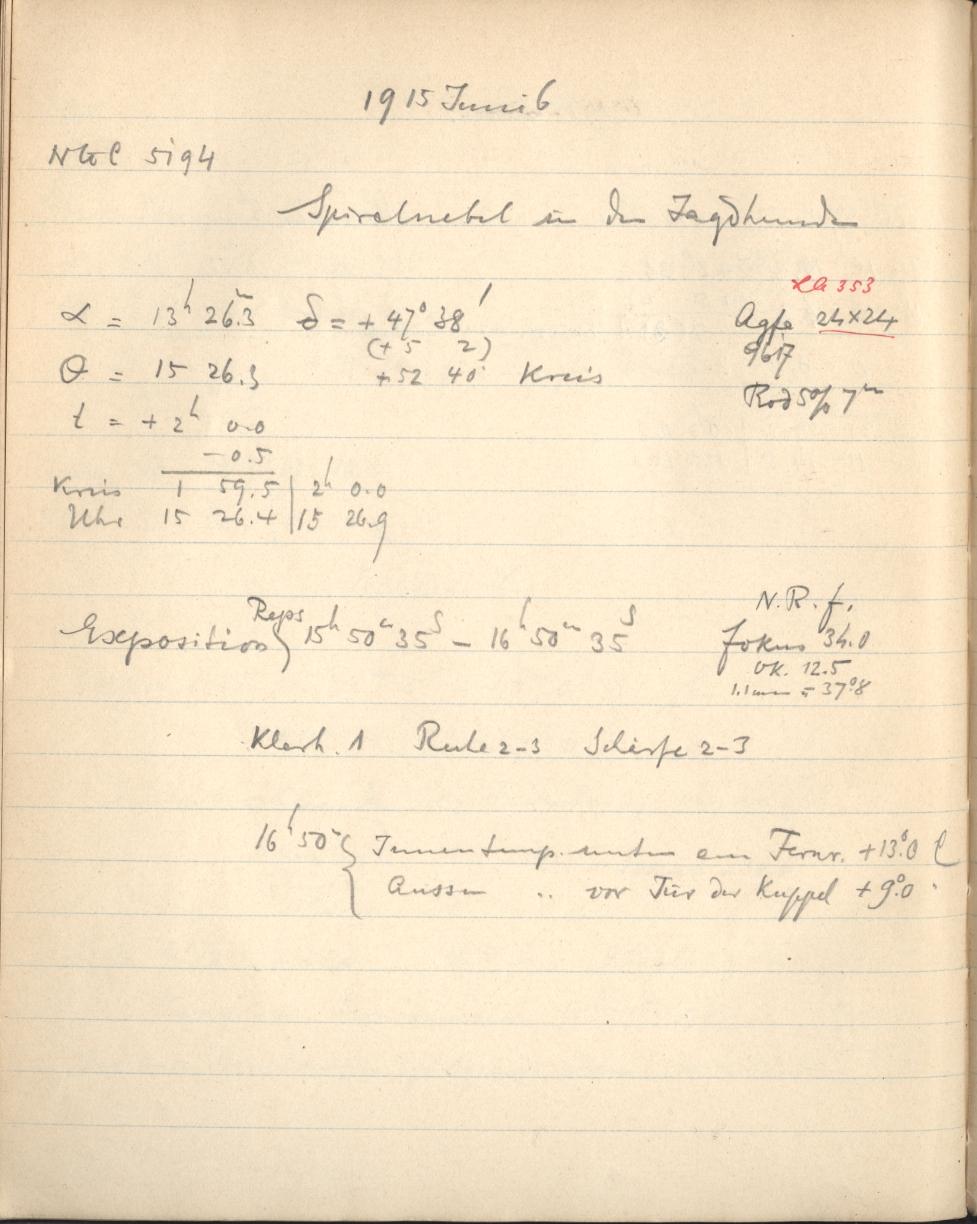 1915 Juni 6
NGC 5194
Spiralnebel in den Jagdhunden
α = 13h 26m.3 δ = +47° 38'
(+5 2)
Θ = 15 26.3 +52 40 Kreis
353
Agfa 24×24
9617
Rod 50% 7m
t = +2h 0.0
-0.5
Kreis 1 59.5 | 2h 0.0
Uhr 15 26.4 | 15 26.9
N.R.f.
Exposition Reps } 15h 50m 35s – 16h 50m 35s
Fokus 34.0
OK. 12.5
1.1mm = 37°.8
Klarh. 1 Ruhe 2-3 Schärfe 2-3
16h 50m { Innentemp. unten am Fernr. +13°.0 C
Aussen „ vor Tür der Kuppel +9°.0 "